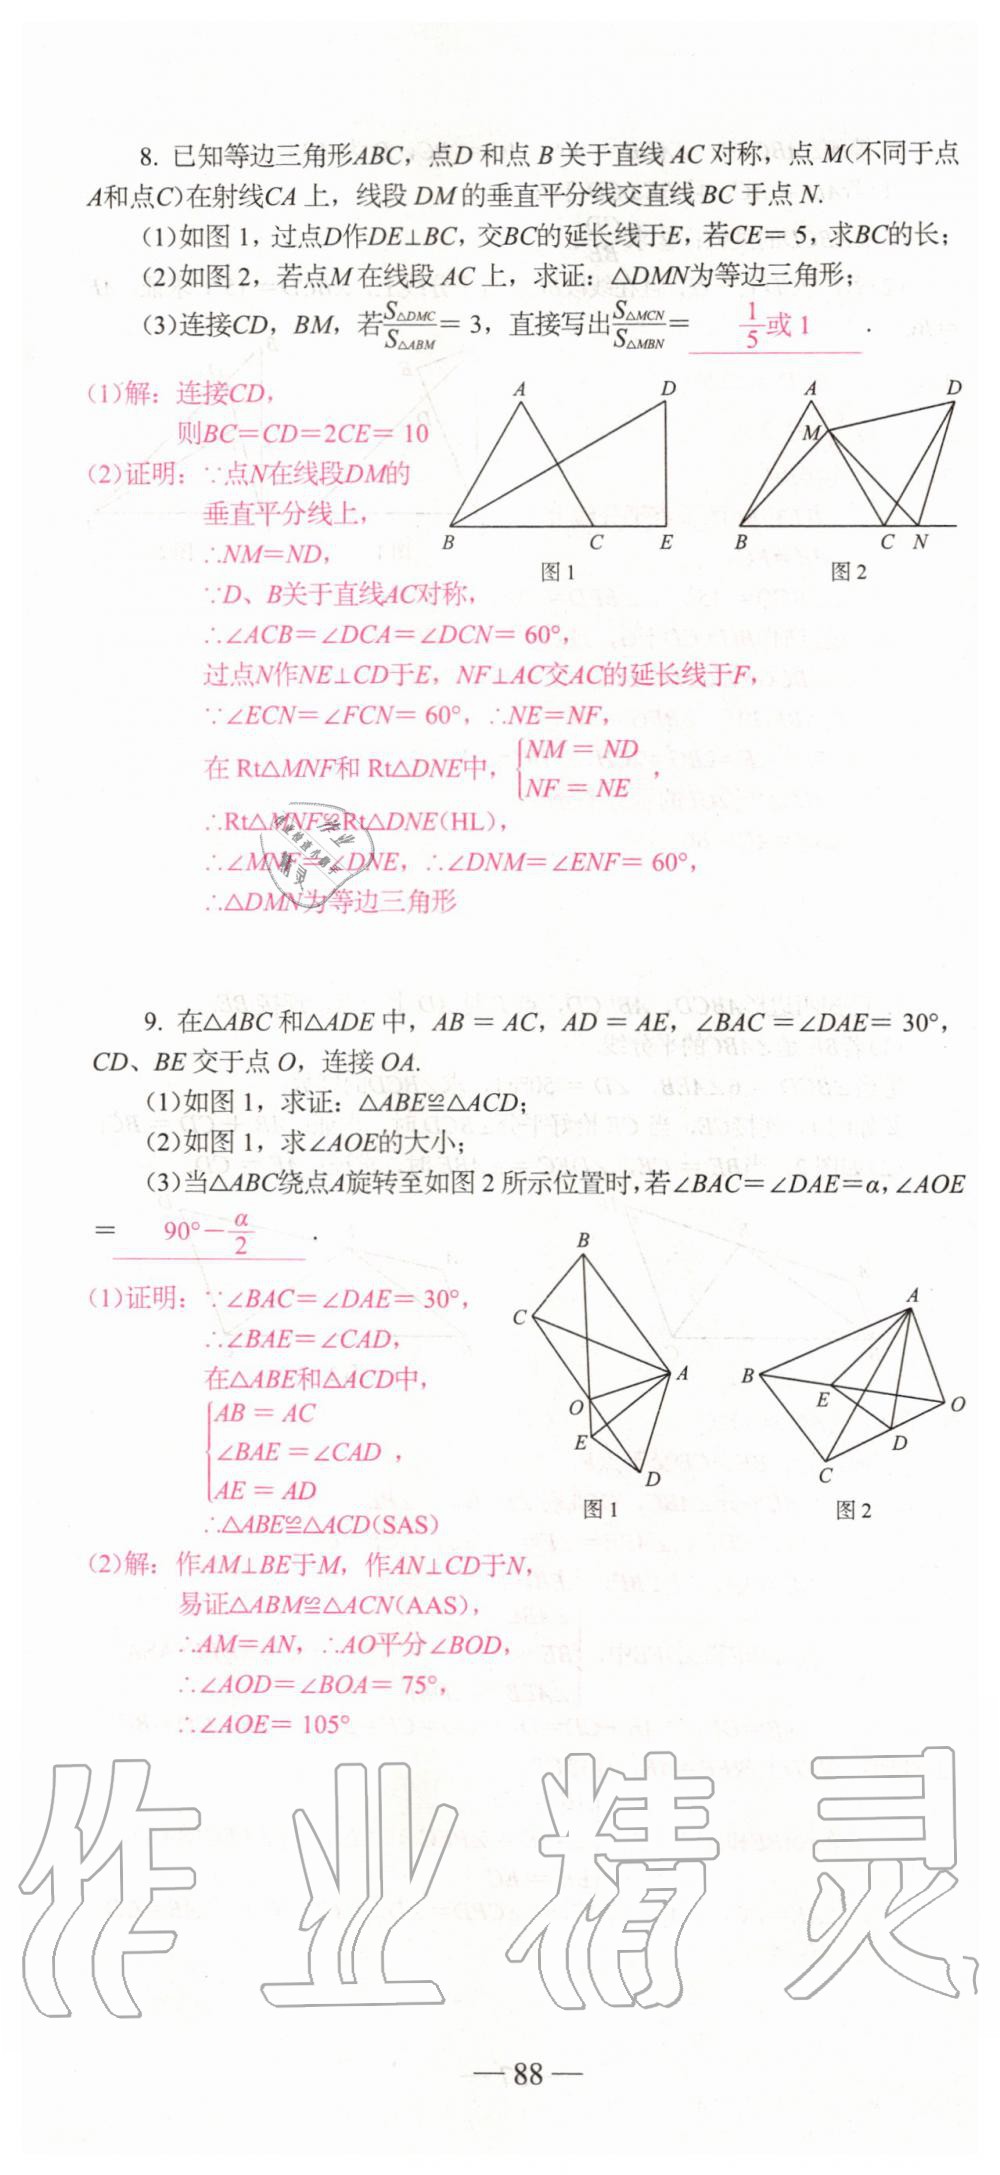 8. 已知等边三角形ABC，点D 和点 B 关于直线 AC 对称，点 M(不同于点
A和点C)在射线CA 上，线段 DM 的垂直平分线交直线 BC 于点 N.
(1)如图 1，过点D作DE⊥BC，交BC的延长线于E，若CE＝5，求BC的长；
(2)如图 2，若点M 在线段 AC 上，求证：△DMN为等边三角形；
(3)连接CD，BM，若S△DMC/S△ABM＝3，直接写出S△MCN/S△MBN＝ 1/5或 1 .
(1)解：连接CD，
则BC＝CD＝2CE＝10
(2)证明：∵点N在线段DM的
垂直平分线上，
∴NM＝ND，
∵D、B关于直线AC对称，
∴∠ACB＝∠DCA＝∠DCN＝60°，
过点N作NE⊥CD于E，NF⊥AC交AC的延长线于F，
∵∠ECN＝∠FCN＝60°，∴NE＝NF，
在 Rt△MNF和 Rt△DNE中，{NM＝ND
NF＝NE，
∴Rt△MNF≌Rt△DNE(HL)，
∴∠MNF＝∠DNE，∴∠DNM＝∠ENF＝60°，
∴△DMN为等边三角形
A D
B C E
图 1
A D
M
B C N
图 2
9. 在△ABC 和△ADE 中，AB＝AC，AD＝AE，∠BAC＝∠DAE＝30°，
CD、BE 交于点 O，连接 OA.
(1)如图 1，求证：△ABE≌△ACD；
(2)如图 1，求∠AOE的大小；
(3)当△ABC绕点A旋转至如图 2 所示位置时，若∠BAC＝∠DAE＝α，∠AOE
＝ 90°－α/2 .
(1)证明：∵∠BAC＝∠DAE＝30°，
∴∠BAE＝∠CAD，
在△ABE和△ACD中，
{AB＝AC
∠BAE＝∠CAD，
AE＝AD
∴△ABE≌△ACD(SAS)
(2)解：作AM⊥BE于M，作AN⊥CD于N，
易证△ABM≌△ACN(AAS)，
∴AM＝AN，∴AO平分∠BOD，
∴∠AOD＝∠BOA＝75°，
∴∠AOE＝105°
B
C
A
O
E
D
图 1
A
B
E
O
D
C
图 2
作业精灵
— 88 —